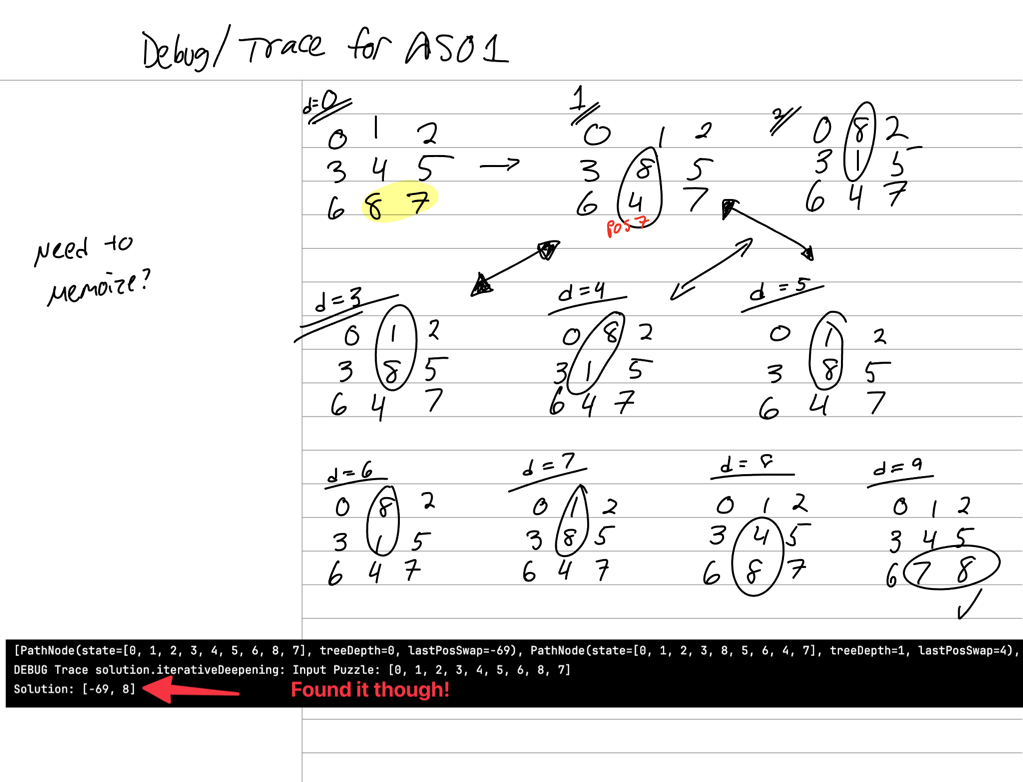 Debug/Trace for AS01
d=0
0 1 2
3 4 5 →
6 8 7
1
0 1 2
3 8 5
6 4 7
pos 7
2
0 8 2
3 1 5
6 4 7
Need to
memoize?
d=3
0 1 2
3 8 5
6 4 7
d=4
0 8 2
3 1 5
6 4 7
d=5
0 1 2
3 8 5
6 4 7
d=6
0 8 2
3 1 5
6 4 7
d=7
0 1 2
3 8 5
6 4 7
d=8
0 1 2
3 4 5
6 8 7
d=9
0 1 2
3 4 5
6 7 8
✓
[PathNode(state=[0, 1, 2, 3, 4, 5, 6, 8, 7], treeDepth=0, lastPosSwap=-69), PathNode(state=[0, 1, 2, 3, 8, 5, 6, 4, 7], treeDepth=1, lastPosSwap=4),
DEBUG Trace solution.iterativeDeepening: Input Puzzle: [0, 1, 2, 3, 4, 5, 6, 8, 7]
Solution: [-69, 8]
Found it though!